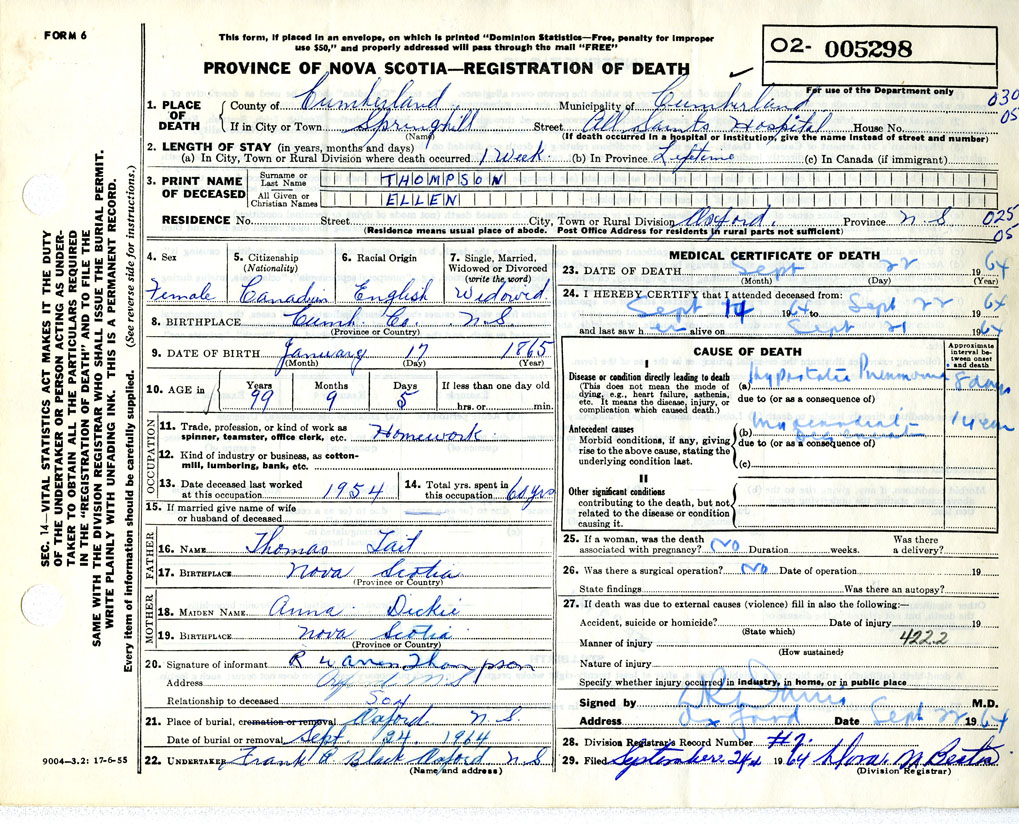 FORM 6
This form, if placed in an envelope, on which is printed "Dominion Statistics—Free, penalty for improper
use $50," and properly addressed will pass through the mail "FREE"
O2- 005298
PROVINCE OF NOVA SCOTIA—REGISTRATION OF DEATH
For use of the Department only
1. PLACE OF DEATH
County of Cumberland Municipality of Cumberland 030
05
If in City or Town Springhill Street All Saints Hospital House No.
(Name) (If death occurred in a hospital or institution, give the name instead of street and number)
2. LENGTH OF STAY (in years, months and days)
(a) In City, Town or Rural Division where death occurred 1 Week. (b) In Province Lifetime (c) In Canada (if immigrant)
3. PRINT NAME OF DECEASED
Surname or Last Name THOMPSON
All Given or Christian Names ELLEN
RESIDENCE No. Street City, Town or Rural Division Oxford, Province N.S 025
05
(Residence means usual place of abode. Post Office Address for residents in rural parts not sufficient)
4. Sex Female
5. Citizenship (Nationality) Canadian
6. Racial Origin English
7. Single, Married, Widowed or Divorced (write the word) Widowed
8. BIRTHPLACE Cumb. Co. N.S.
(Province or Country)
9. DATE OF BIRTH January 17 1865
(Month) (Day) (Year)
10. AGE in Years 99 Months 9 Days 5 If less than one day old hrs. or min.
OCCUPATION
11. Trade, profession, or kind of work as spinner, teamster, office clerk, etc. Homework.
12. Kind of industry or business, as cotton-mill, lumbering, bank, etc.
13. Date deceased last worked at this occupation 1954
14. Total yrs. spent in this occupation 60 yrs
15. If married give name of wife or husband of deceased
FATHER
16. NAME Thomas Tait
17. BIRTHPLACE Nova Scotia
(Province or Country)
MOTHER
18. MAIDEN NAME Anna Dickie
19. BIRTHPLACE Nova Scotia
(Province or Country)
20. Signature of informant R Warren Thompson
Address Oxford N.S
Relationship to deceased Son
21. Place of burial, cremation or removal Oxford N.S.
Date of burial or removal Sept. 24, 1964
22. UNDERTAKER Frank R Black Oxford N.S
(Name and address)
9004-3.2: 17-6-55
MEDICAL CERTIFICATE OF DEATH
23. DATE OF DEATH Sept 22 1964
(Month) (Day) (Year)
24. I HEREBY CERTIFY that I attended deceased from:
Sept 14 1964 to Sept 22 1964
and last saw her alive on Sept 21 1964
CAUSE OF DEATH
Approximate interval between onset and death
I
Disease or condition directly leading to death
(This does not mean the mode of dying, e.g., heart failure, asthenia, etc. It means the disease, injury, or complication which caused death.)
(a) Hypostatic Pneumonia 8 days
due to (or as a consequence of)
Antecedent causes
Morbid conditions, if any, giving rise to the above cause, stating the underlying condition last.
(b) Myocardial 1 year
due to (or as a consequence of)
(c)
II
Other significant conditions
contributing to the death, but not related to the disease or condition causing it.
25. If a woman, was the death associated with pregnancy? No Duration weeks. Was there a delivery?
26. Was there a surgical operation? No Date of operation 19
State findings Was there an autopsy?
27. If death was due to external causes (violence) fill in also the following:—
Accident, suicide or homicide? Date of injury 19
(State which)
422.2
Manner of injury
(How sustained)
Nature of injury
Specify whether injury occurred in industry, in home, or in public place
Signed by M.D.
Address Oxford Date Sept 22 1964
28. Division Registrar's Record Number #7.
29. Filed September 24 1964
(Division Registrar)
SEC. 14—VITAL STATISTICS ACT MAKES IT THE DUTY
OF THE UNDERTAKER OR PERSON ACTING AS UNDER-
TAKER TO OBTAIN ALL THE PARTICULARS REQUIRED
IN THE "REGISTRATION OF DEATH" AND TO FILE THE
SAME WITH THE DIVISION REGISTRAR WHO SHALL ISSUE THE BURIAL PERMIT.
WRITE PLAINLY WITH UNFADING INK. THIS IS A PERMANENT RECORD.
Every item of information should be carefully supplied. (See reverse side for instructions.)